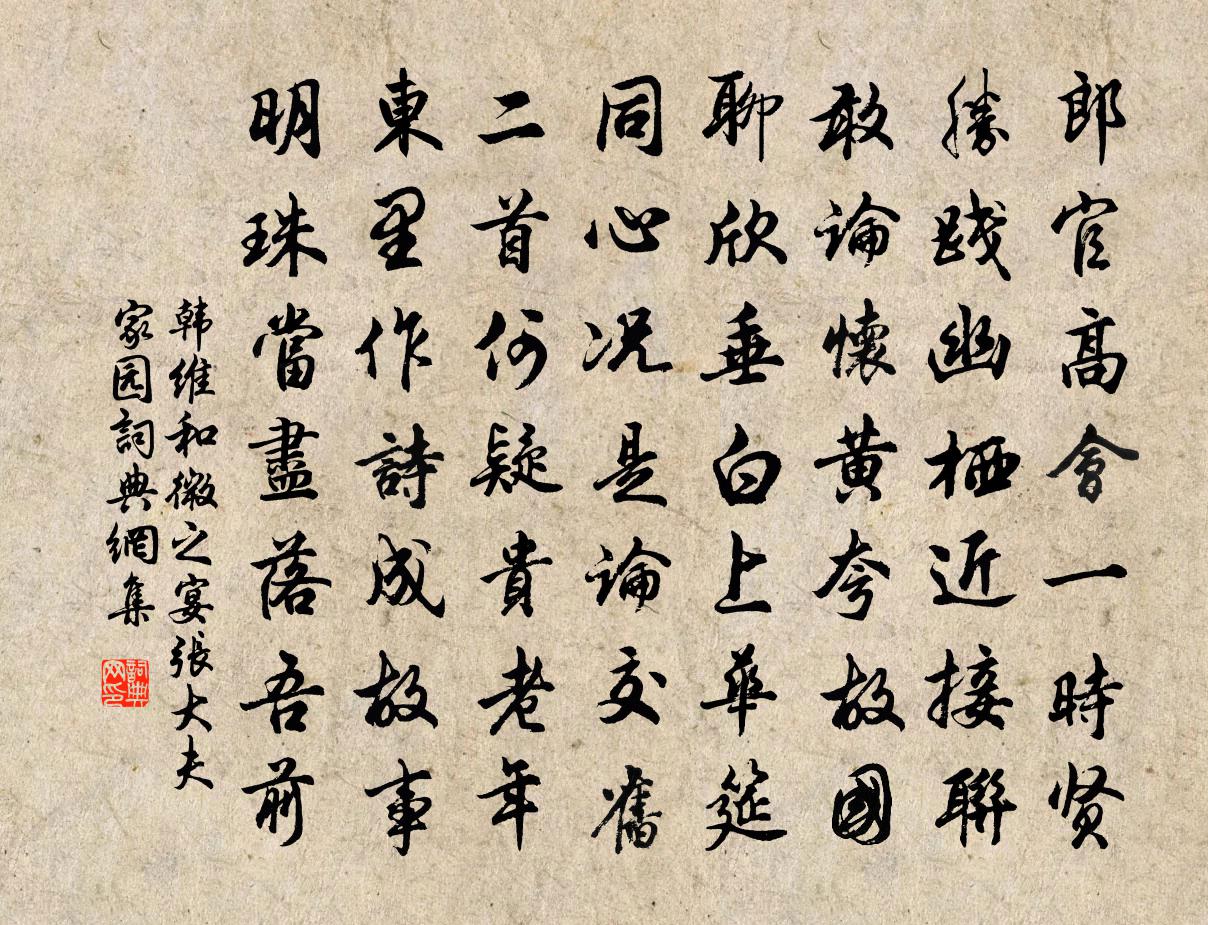 郎官高會一時贤
勝踐幽栖近接聯
敢論懷黄夸故國
聊欣垂白上華筵
同心况是論交舊
二首何疑貴老年
東里作詩成故事
明珠當盡落吾前
韩維和微之宴張大夫
家园詞典網集
詞典网印